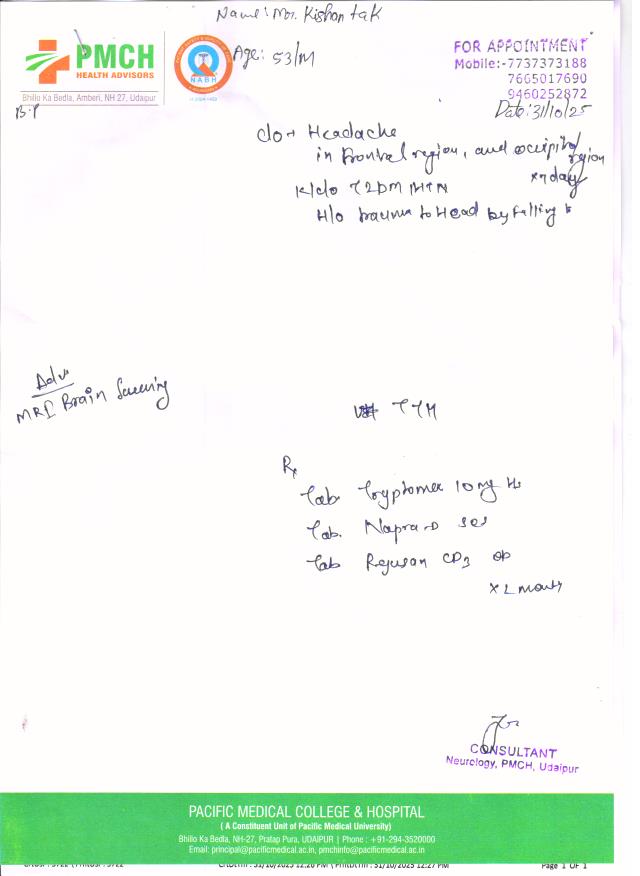 Name: Mr. Kishan tak
PMCH
HEALTH ADVISORS
Bhillo Ka Bedla, Amberi, NH 27, Udaipur
NABH
Age: 53/M
FOR APPOINTMENT
Mobile:-7737373188
7665017690
9460252872
Date: 31/10/25
B.P
Headache
in frontal region, and occipital region
x 7 days
K/c/o T2DM HTN
H/o trauma to Head by falling
Adv
MRI Brain Screening
TTH
Rx
Tab. Tryptomer 10 mg Hs
Tab. Napra-D SOS
Tab Rejusan CD3 OD
CONSULTANT
Neurology, PMCH, Udaipur
PACIFIC MEDICAL COLLEGE & HOSPITAL
( A Constituent Unit of Pacific Medical University)
Bhillo Ka Bedla, NH-27, Pratap Pura, UDAIPUR | Phone : +91-294-3520000
Email: principal@pacificmedical.ac.in, pmchinfo@pacificmedical.ac.in
31/10/2025 12:26 PM 31/10/2025 12:27 PM
Page 1 OF 1